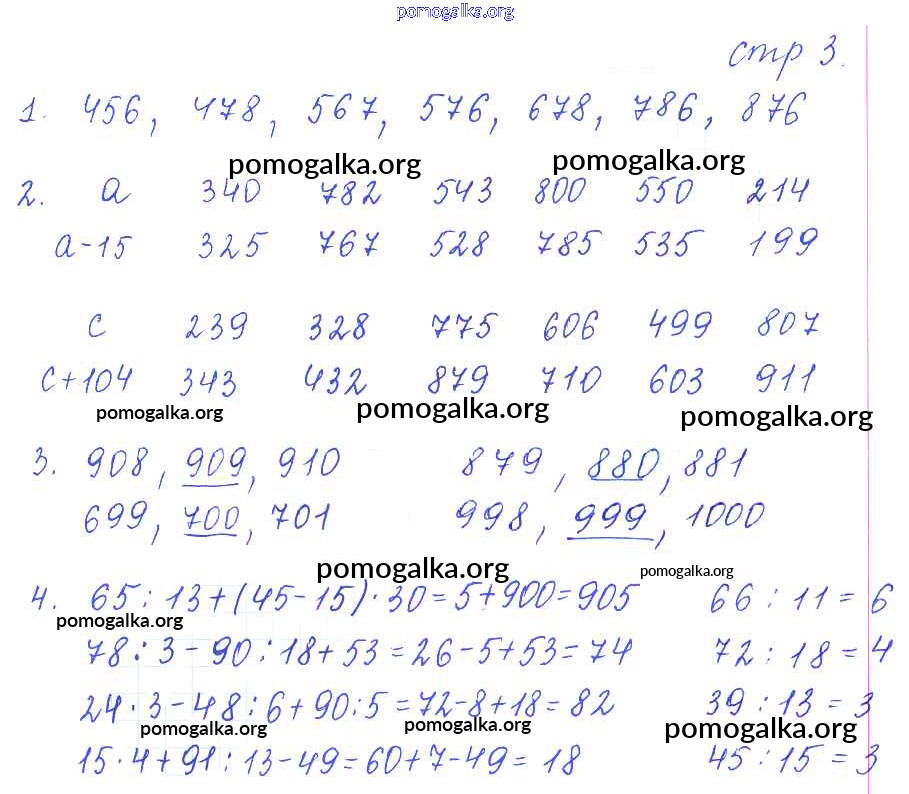 pomogalka.org
стр 3.
1. 456, 478, 567, 576, 678, 786, 876
pomogalka.org pomogalka.org
2. a 340 782 543 800 550 214
a-15 325 767 528 785 535 199
c 239 328 775 606 499 807
c+104 343 432 879 710 603 911
pomogalka.org pomogalka.org pomogalka.org
3. 908, 909, 910 879, 880, 881
699, 700, 701 998, 999, 1000
pomogalka.org pomogalka.org
4. 65:13+(45-15)·30=5+900=905 66:11=6
pomogalka.org
78:3-90:18+53=26-5+53=74 72:18=4
24·3-48:6+90:5=72-8+18=82 39:13=3
pomogalka.org pomogalka.org pomogalka.org
15·4+91:13-49=60+7-49=18 45:15=3